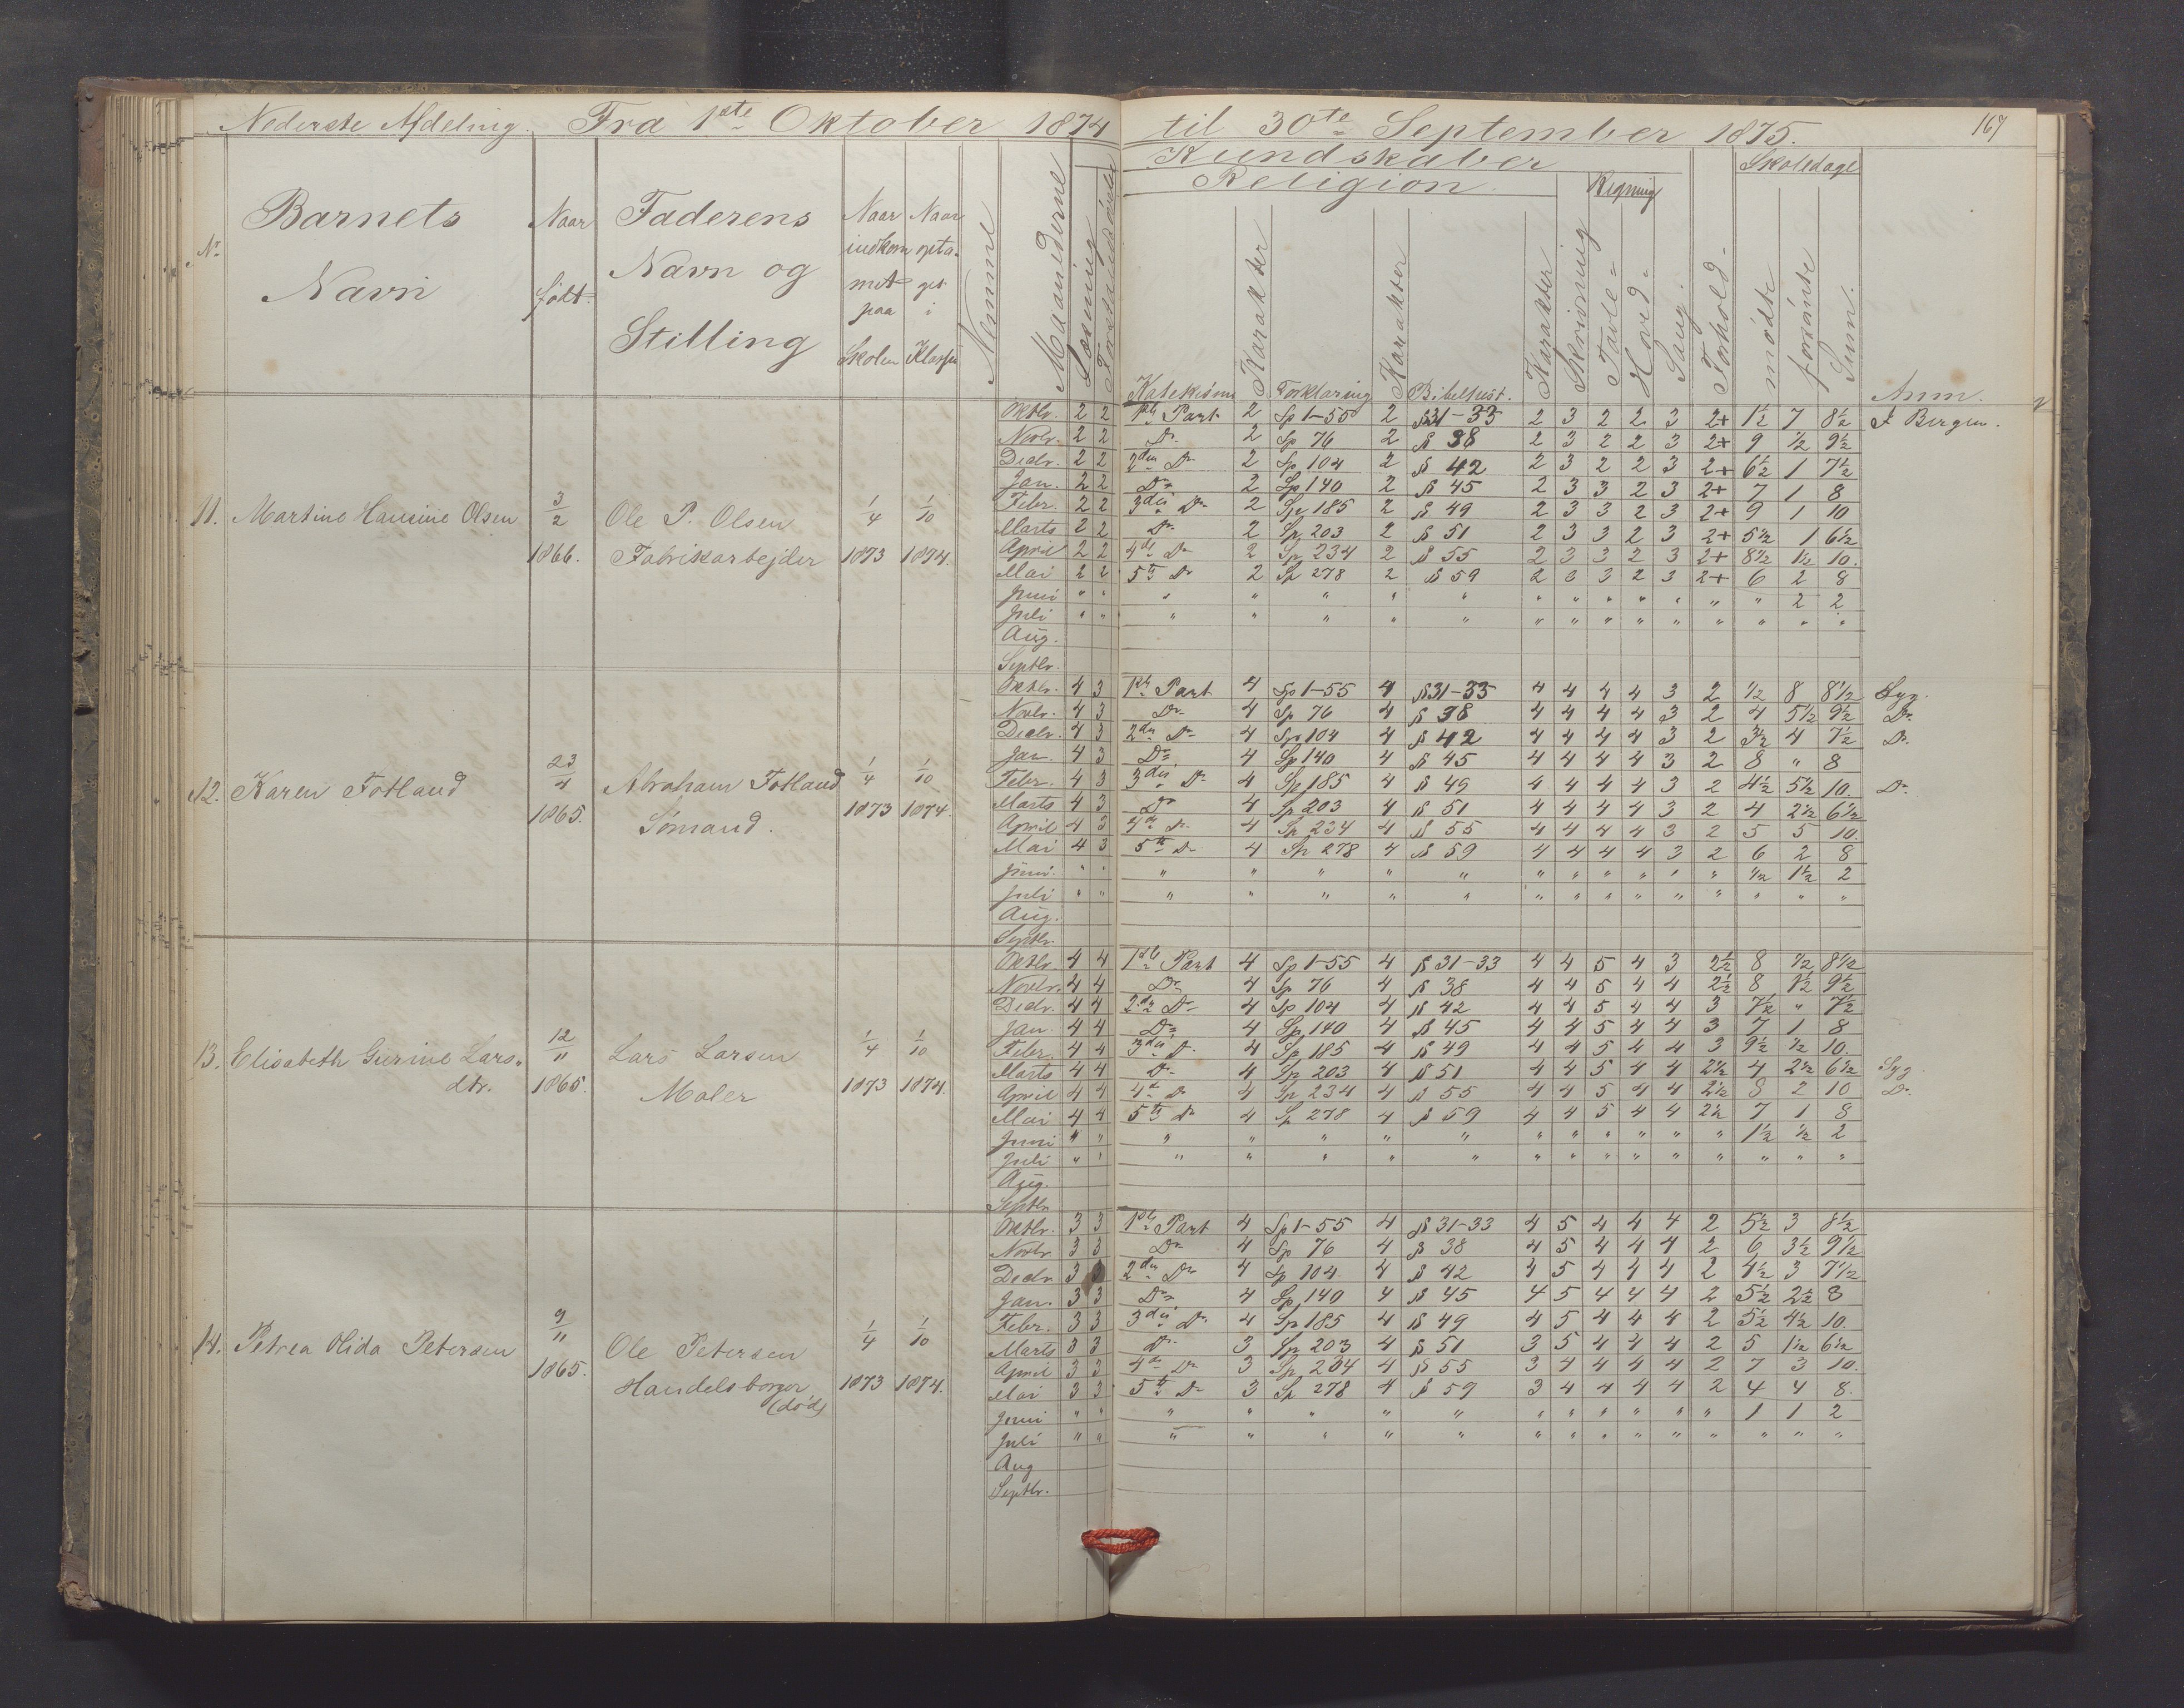 Nederste Afdeling. Fra 1ste Oktober 1874 til 30te September 1875. 167
Kundskaber
Religion Regning Skoledage
No Barnets Navn Naar født. Faderens Navn og Stilling Naar indkommet paa Skolen Naar optaget i Klassen Nemme Maanederne Læsning Katekism Karakter Forklaring Karakter Bibelhist. Karakter Skrivning Tavle- Hoved- Sang. Forhold- mødte forsømte Sum. Anm.
11. Martine Hansine Olsen 3/2 1866. Ole P. Olsen Fabrikarbejder 1/4 1873 1/10 1874.
Oktbr. 2 2 1ste Part 2 Sp 1-55 2 § 31-33 2 3 2 2 3 2+ 1½ 7 8½ I Bergen.
Novbr. 2 2 Do 2 Sp 76 2 § 38 2 3 2 2 3 2+ 9 ½ 9½
Decbr. 2 2 2den Do 2 Sp 104 2 § 42 2 3 2 2 3 2+ 6½ 1 7½
Jan. 2 2 Do 2 Sp 140 2 § 45 2 3 3 2 3 2+ 7 1 8
Febr. 2 2 3die Do 2 Sp 185 2 § 49 2 3 3 2 3 2+ 9 1 10
Marts 2 2 Do 2 Sp 203 2 § 51 2 3 3 2 3 2+ 5½ 1 6½
April 2 2 4de Do 2 Sp 234 2 § 55 2 3 3 2 3 2+ 8½ 1½ 10.
Mai 2 2 5te Do 2 Sp 278 2 § 59 2 3 3 2 3 2+ 6 2 8
Juni " " " " " " " " " " " " " " 2 2
Juli " " " " " " " " " " " " " " " "
Aug.
Septbr.
12. Karen Fotland 23/4 1865. Abraham Fotland Sømand. 1/4 1873 1/10 1874.
Oktbr. 4 3 1ste Part 4 Sp 1-55 4 § 31-33 4 4 4 4 3 2 ½ 8 8½ Syg.
Novbr. 4 3 Do 4 Sp 76 4 § 38 4 4 4 4 3 2 4 5½ 9½ Do.
Decbr. 4 3 2den Do 4 Sp 104 4 § 42 4 4 4 4 3 2 3½ 4 7½ Do.
Jan. 4 3 Do 4 Sp 140 4 § 45 4 4 4 4 3 2 8 " 8
Febr. 4 3 3die Do 4 Sp 185 4 § 49 4 4 4 4 3 2 4½ 5½ 10. Do
Marts 4 3 Do 4 Sp 203 4 § 51 4 4 4 4 3 2 4 2½ 6½
April 4 3 4de Do 4 Sp 234 4 § 55 4 4 4 4 3 2 5 5 10.
Mai 4 3 5te Do 4 Sp 278 4 § 59 4 4 4 4 3 2 6 2 8
Juni. " " " " " " " " " " " " " ½ 1½ 2
Juli " " " " " " " " " " " " " " " "
Aug.
Septbr.
13. Elisabeth Gurine Lars- dtr. 12/11 1865. Lars Larsen Maler 1/4 1873 1/10 1874.
Oktbr. 4 4 1ste Part 4 Sp 1-55 4 § 31-33 4 4 5 4 3 2½ 8 ½ 8½
Novbr. 4 4 Do 4 Sp 76 4 § 38 4 4 5 4 4 2½ 8 1½ 9½
Decbr. 4 4 2den Do 4 Sp 104 4 § 42 4 4 5 4 4 3 7½ " 7½
Jan. 4 4 Do 4 Sp 140 4 § 45 4 4 5 4 4 3 7 1 8
Febr. 4 4 3die Do 4 Sp 185 4 § 49 4 4 5 4 4 3 9½ ½ 10.
Marts 4 4 Do 4 Sp 203 4 § 51 4 4 5 4 4 2½ 4 2½ 6½ Syg
April 4 4 4de Do 4 Sp 234 4 § 55 4 4 5 4 4 2½ 8 2 10 Do.
Mai 4 4 5te Do 4 Sp 278 4 § 59 4 4 5 4 4 2½ 7 1 8
Juni " " " " " " " " " " " " " 1½ ½ 2
Juli " " " " " " " " " " " " " " " "
Aug.
Septbr
14. Petrea Olida Petersen 9/11 1865. Ole Petersen Handelsborger, (død) 1/4 1873 1/10 1874.
Oktbr. 3 3 1ste Part 4 Sp 1-55 4 § 31-33 4 5 4 4 4 2 5½ 3 8½
Novbr. 3 3 Do 4 Sp 76 4 § 38 4 5 4 4 4 2 6 3½ 9½
Decbr 3 2den Do 4 Sp 104 4 § 42 4 5 4 4 4 2 4½ 3 7½
Jan. 3 3 Do 4 Sp 140 4 § 45 4 5 4 4 4 2 5½ 2½ 8
Febr. 3 3 3die Do 4 Sp 185 4 § 49 4 5 4 4 4 2 5½ 4½ 10.
Marts 3 3 Do 3 Sp 203 4 § 51 3 5 4 4 4 2 5 1½ 6½
April 3 3 4de Do 3 Sp 234 4 § 55 3 4 4 4 4 2 7 3 10.
Mai 3 3 5te Do 3 Sp 278 4 § 59 3 4 4 4 4 2 4 4 8.
Juni " " " " " " " " " " " " " 1 1 2
Juli " " " " " " " " " " " " " " " "
Aug
Septbr.